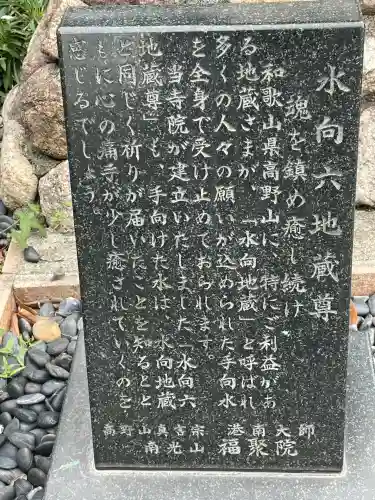 水向六地蔵尊
魂を鎮め癒し続け
和歌山県高野山に、特にご利益があ
る地蔵さまが、「水向地蔵」と呼ばれ
多くの人々の願いが込められた手向水
を全身で受け止めておられます。
当寺院が建立いたしました「水向六
地蔵尊」も、手向けた水は、水向地蔵
と同じく祈りが届いたことを知るとと
もに心の痛みが少し癒されていくのを
感じるでしょう。
高野山真言宗 港南大師
南光山 福聚院